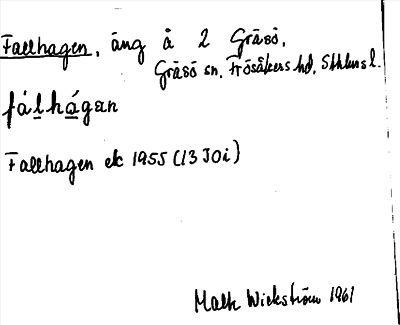 Fallhagen, äng å 2 Gräsö,
Gräsö sn, Frösåkers hd, Sthlms l.
fálhágan
Fallhagen ek 1955 (13 JOi)
Wickström 1961